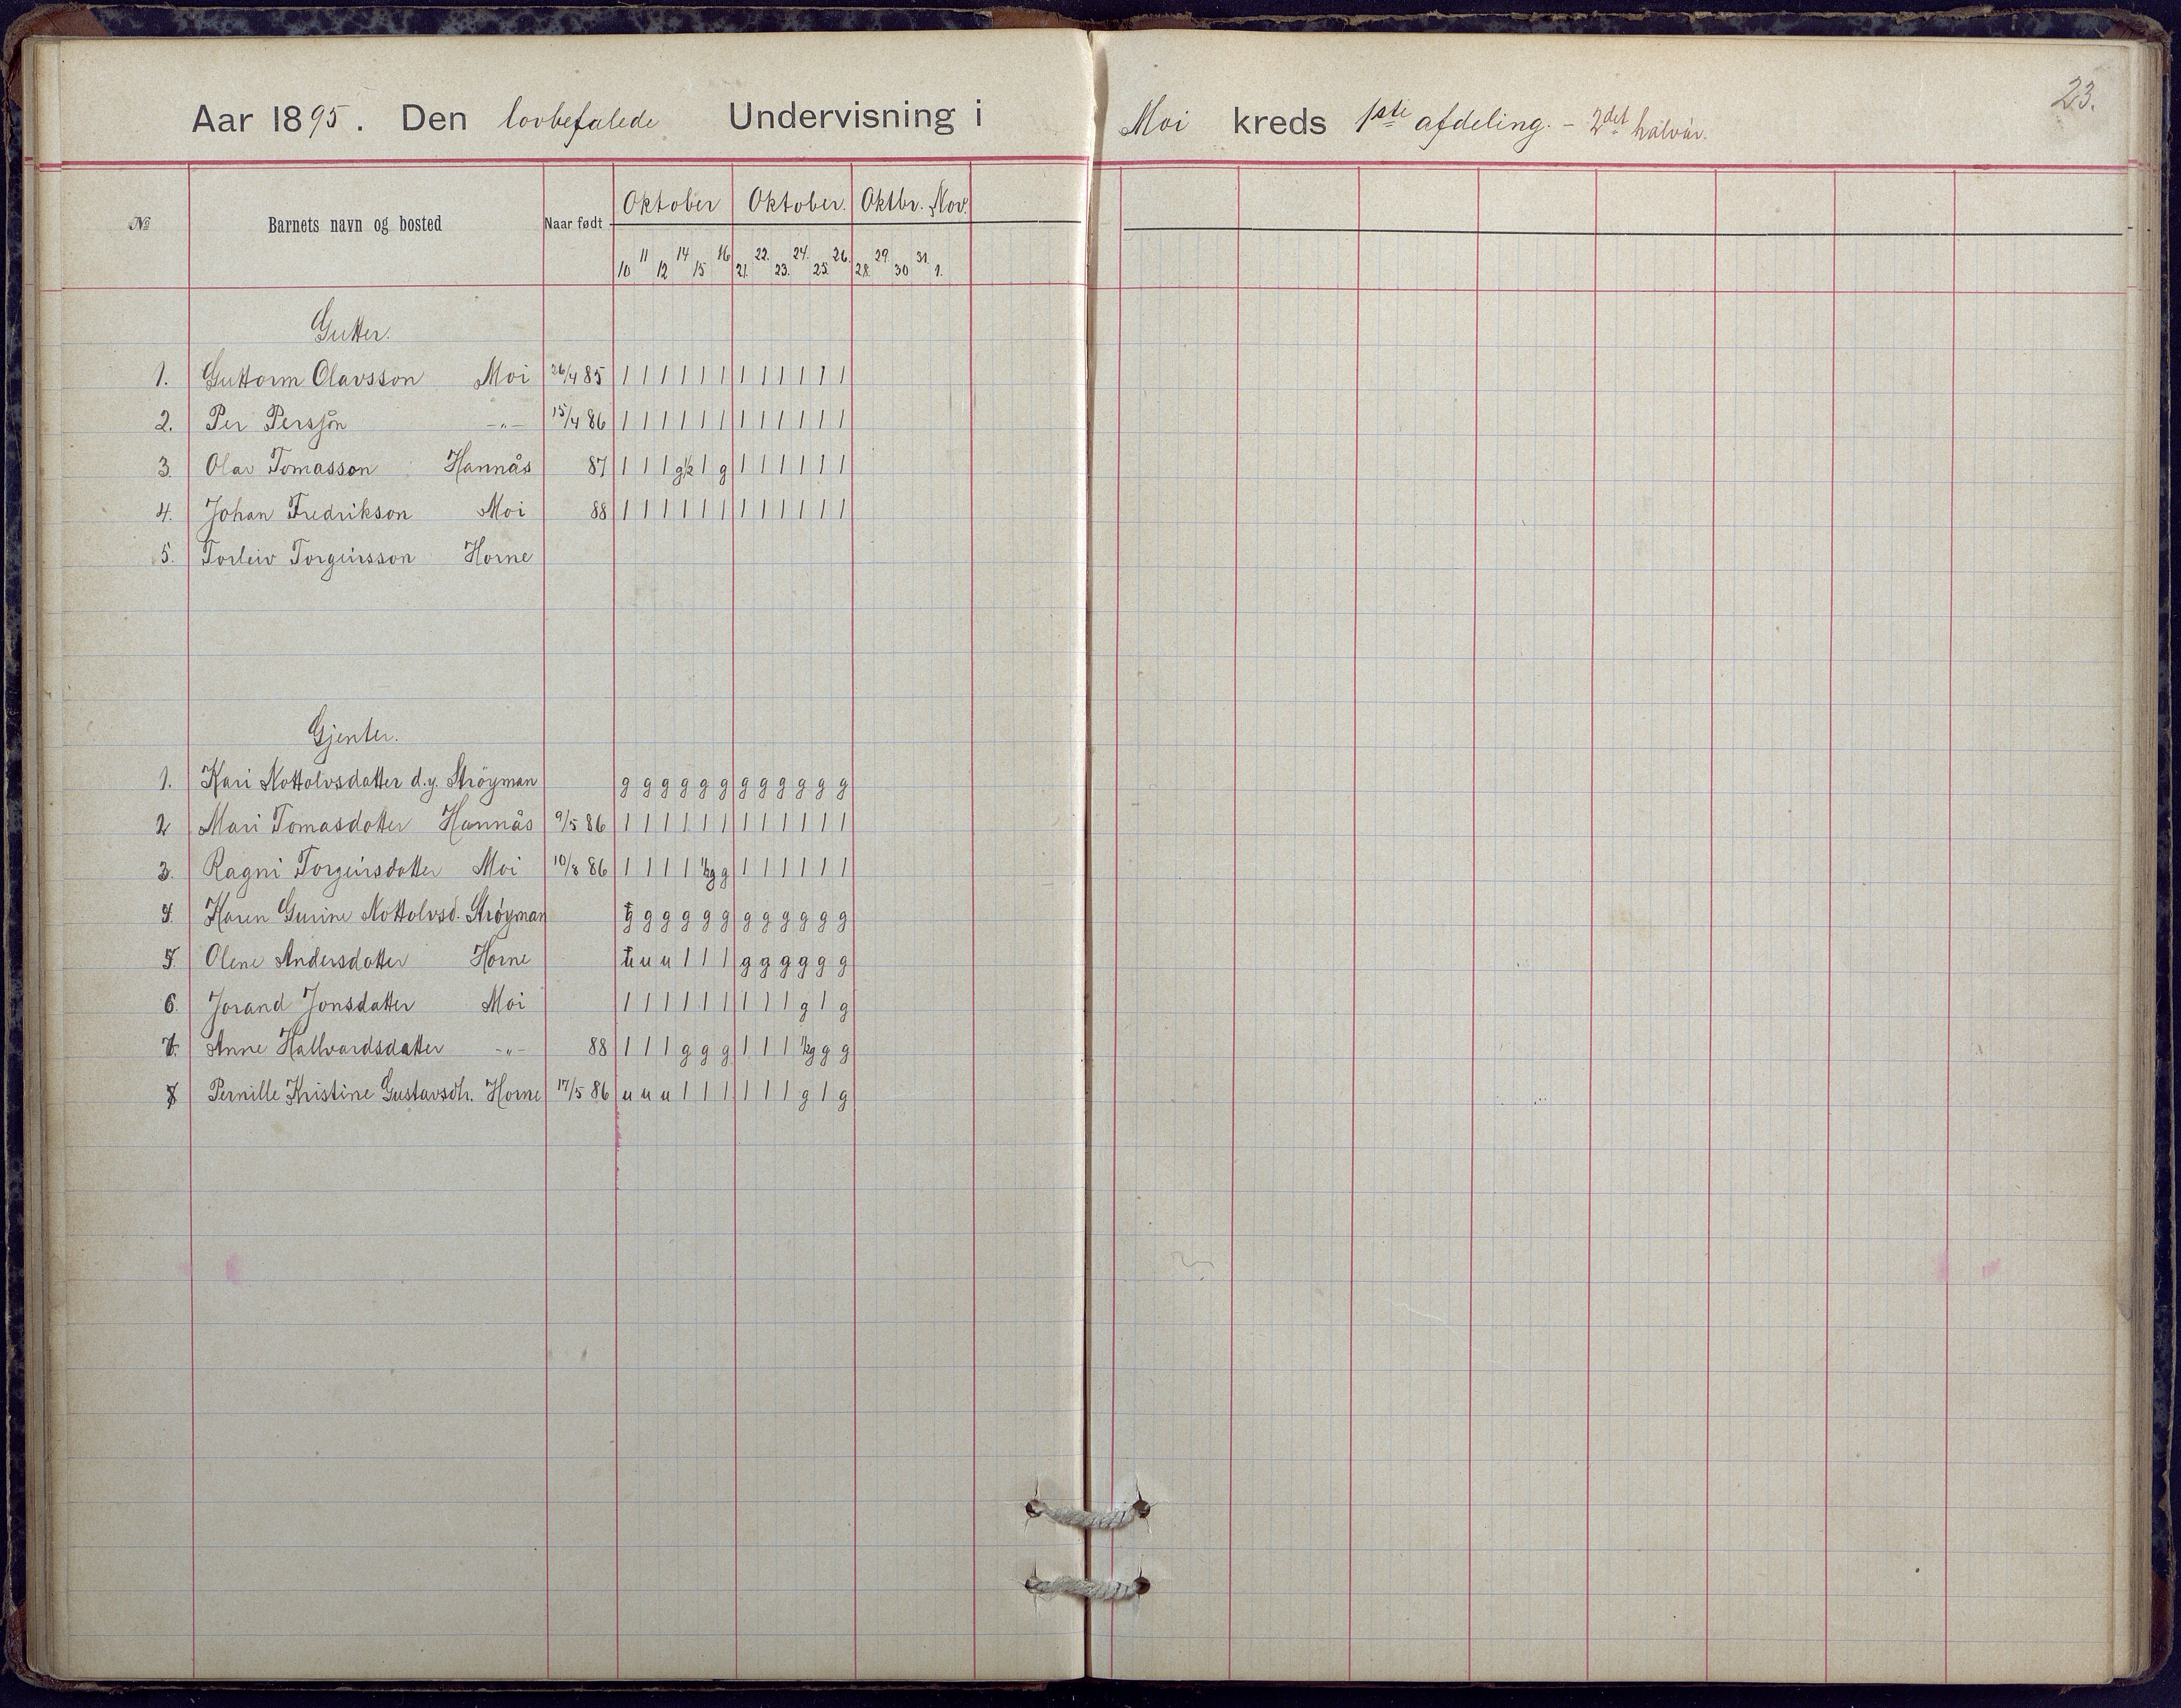 23.
Aar 1895. Den lovbefalede Undervisning i Moi kreds 1ste afdeling. - 2det halvår.
№ Barnets navn og bosted Naar født Oktober Oktober. Oktbr. Nov.
10 11 12 14 15 16 21. 22. 23. 24. 25. 26. 28. 29. 30 31. 1.
Gutter.
1. Guttorm Olavsson Moi 26/4 85 1 1 1 1 1 1 1 1 1 1 1 1
2. Per Persjøn -"- 15/4 86 1 1 1 1 1 1 1 1 1 1 1 1
3. Olav Tomasson Hannås 87 1 1 1 g½ 1 g 1 1 1 1 1 1
4. Johan Fredrikson Moi 88 1 1 1 1 1 1 1 1 1 1 1 1
5. Torleiv Torgeirsson Horne
Gjenter.
1. Kari Nottolvsdatter d.y. Strøyman g g g g g g g g g g g g
2 Mari Tomasdatter Hannås 9/5 86 1 1 1 1 1 1 1 1 1 1 1 1
3. Ragni Torgeirsdatter Moi 10/8 86 1 1 1 1 ½g g 1 1 1 1 1 1
4. Karen Gurine Nottolvsd. Strøyman g g g g g g g g g g g g
5. Olene Andersdatter Horne u u u 1 1 1 g g g g g g
6. Jorand Jonsdatter Moi 1 1 1 1 1 1 1 1 1 g 1 g
7. Anne Hallvardsdatter -"- 88 1 1 1 g g g 1 1 1 ½g g g
8 Pernille Kristine Gustavsdtr. Horne 17/5 86 u u u 1 1 1 1 1 1 g 1 g